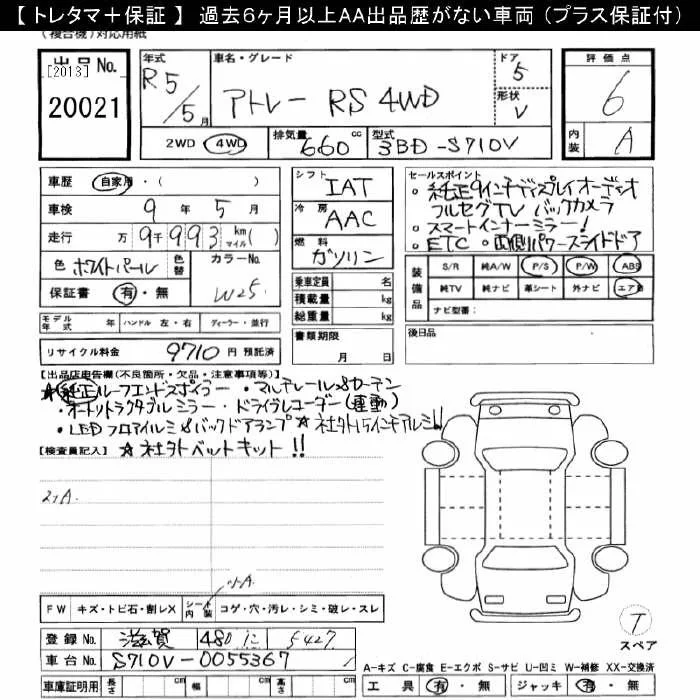 【 トレタマ＋保証 】 過去６ヶ月以上ＡＡ出品歴がない車両（プラス保証付）
（複合機）対応用紙
出品No.
[2013]
20021
年式 R5/5月
車名・グレード
アトレー RS 4WD
ドア 5
形状 V
評価点
6
内装 A
2WD 4WD
排気量 660 cc
型式 3BD-S710V
車歴 自家用・( )
車検 9年 5月
走行 万 9千993 km マイル ( )
色 ホワイトパール 色替 カラーNo. W25
保証書 有・無
モデル年式 年 ハンドル 左・右 ディーラー・並行
リサイクル料金 9710 円 預託済
シフト IAT
冷房 AAC
燃料 ガソリン
乗車定員 名
積載量 kg
総重量 kg
書類期限
月 日
セールスポイント
・純正9インチディスプレイオーディオ
フルセグTV バックカメラ
・スマートインナーミラー!
・ETC ・両側パワースライドドア
装備品 S/R 純A/W P/S P/W ABS
純TV 純ナビ 革シート 外ナビ エアB
ナビ型番：
後日品
【出品店申告欄(不良箇所・欠品・注意事項等)】
★純正ルーフエンドスポイラー・マルチレール&カーテン
・オートリトラクタブルミラー・ドライブレコーダー(連動)
・LEDフロアイルミ&バックドアランプ ☆社外15インチアルミ!!
【検査員記入】 ☆社外ベットキット!!
FW キズ・トビ石・割レX シート内装 コゲ・穴・汚レ・シミ・破レ・スレ
登録No. 滋賀 480 に 5427
車台No. S710V-0055367
車庫証明用 長さ cm 幅 cm 高さ cm
T
スペア
A-キズ C-腐食 E-エクボ S-サビ U-凹ミ W-補修 XX-交換済
工具 有・無 ジャッキ 有・無